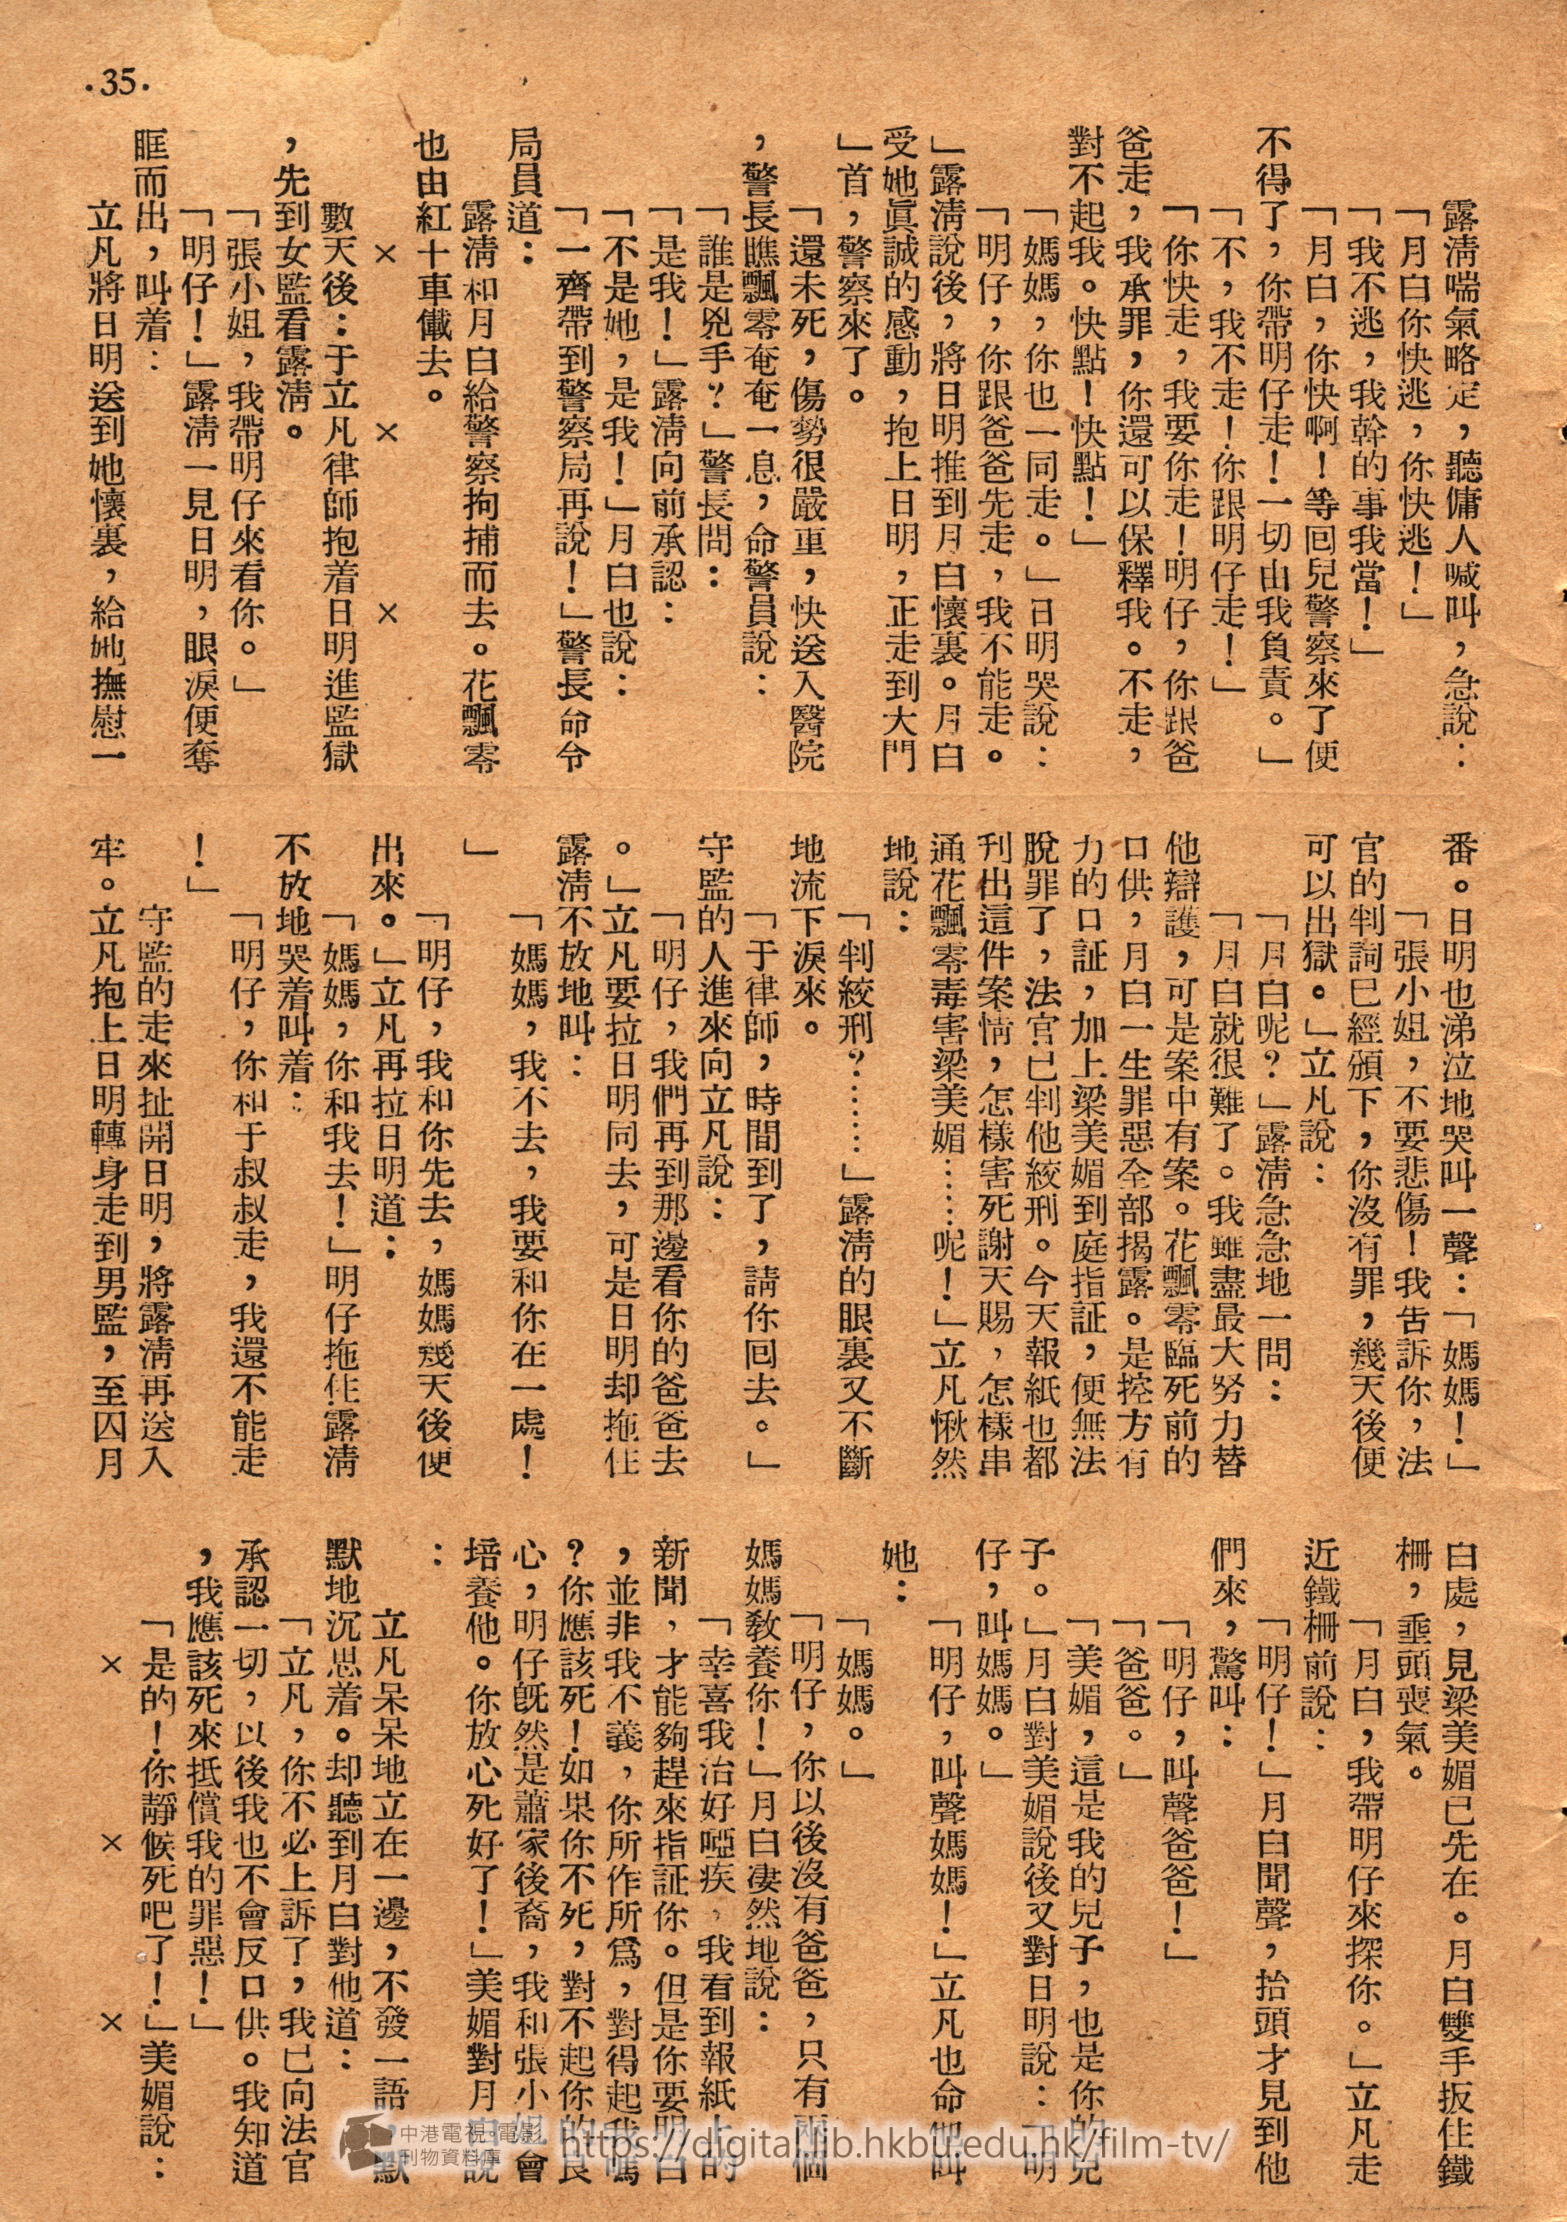 ·35·
露淸喘氣略定，聽傭人喊叫，急說：
「月白你快逃，你快逃！」
「我不逃，我幹的事我當！」
「月白，你快啊！等囘兒警察來了便
不得了，你帶明仔走！一切由我負責。」
「不，我不走！你跟明仔走！」
「你快走，我要你走！明仔，你跟爸
爸走，我承罪，你還可以保釋我。不走，
對不起我。快點！快點！」
「媽媽，你也一同走。」日明哭說：
「明仔，你跟爸爸先走，我不能走。
」露淸說後，將日明推到月白懷裏。月白
受她眞誠的感動，抱上日明，正走到大門
」首，警察來了。
「還未死，傷勢很嚴重，快送入醫院
，警長瞧飄零奄奄一息，命警員說：
「誰是兇手？」警長問：
「是我！」露淸向前承認：
「不是她，是我！」月白也說：
「一齊帶到警察局再說！」警長命令
局員道：
露淸和月白給警察拘捕而去。花飄零
也由紅十車儎去。
×　×　×
數天後：于立凡律師抱着日明進監獄
，先到女監看露淸。
「張小姐，我帶明仔來看你。」
「明仔！」露淸一見日明，眼淚便奪
眶而出，叫着：
立凡將日明送到她懷裏，給她撫慰一
番。日明也涕泣地哭叫一聲：「媽媽！」
「張小姐，不要悲傷！我吿訴你，法
官的判詞已經頒下，你沒有罪，幾天後便
可以出獄。」立凡說：
「月白呢？」露淸急急地一問：
「月白就很難了。我雖盡最大努力替
他辯護，可是案中有案。花飄零臨死前的
口供，月白一生罪惡全部揭露。是控方有
力的口証，加上梁美媚到庭指証，便無法
脫罪了，法官已判他絞刑。今天報紙也都
刋出這件案情，怎樣害死謝天賜，怎樣串
通花飄零毒害梁美媚……呢！」立凡愀然
地說：
「判絞刑？……」露淸的眼裏又不斷
地流下淚來。
「于律師，時間到了，請你囘去。」
守監的人進來向立凡說：
「明仔，我們再到那邊看你的爸爸去
。」立凡要拉日明同去，可是日明却拖住
露淸不放地叫：
「媽媽，我不去，我要和你在一處！
」
「明仔，我和你先去，媽媽幾天後便
出來。」立凡再拉日明道：
「媽媽，你和我去！」明仔拖住露淸
不放地哭着叫着：
「明仔，你和于叔叔走，我還不能走
！」
守監的走來扯開日明，將露淸再送入
牢。立凡抱上日明轉身走到男監，至囚月
白處，見梁美媚已先在。月白雙手扳住鐵
柵，垂頭喪氣。
「月白，我帶明仔來探你。」立凡走
近鐵柵前說：
「明仔！」月白聞聲，抬頭才見到他
們來，驚叫：
「明仔，叫聲爸爸！」
「爸爸。」
「美媚，這是我的兒子，也是你的兒
子。」月白對美媚說後又對日明說：「明
仔，叫媽媽。」
「明仔，叫聲媽媽！」立凡也命他叫
她：
「媽媽。」
「明仔，你以後沒有爸爸，只有兩個
媽媽敎養你！」月白凄然地說：
「幸喜我治好啞疾，我看到報紙上的
新聞，才能夠趕來指証你。但是你要明白
，並非我不義，你所作所爲，對得起我嗎
？你應該死！如果你不死，對不起你的良
心，明仔旣然是蕭家後裔，我和張小姐會
培養他。你放心死好了！」美媚對月白說
：
立凡呆呆地立在一邊，不發一語，默
默地沉思着。却聽到月白對他道：
「立凡，你不必上訴了，我已向法官
承認一切，以後我也不會反口供。我知道
，我應該死來抵償我的罪惡！」
「是的！你靜候死吧了！」美媚說：
×　×　×
中港電視·電影
刊物資料庫
https://digital.lib.hkbu.edu.hk/film-tv/